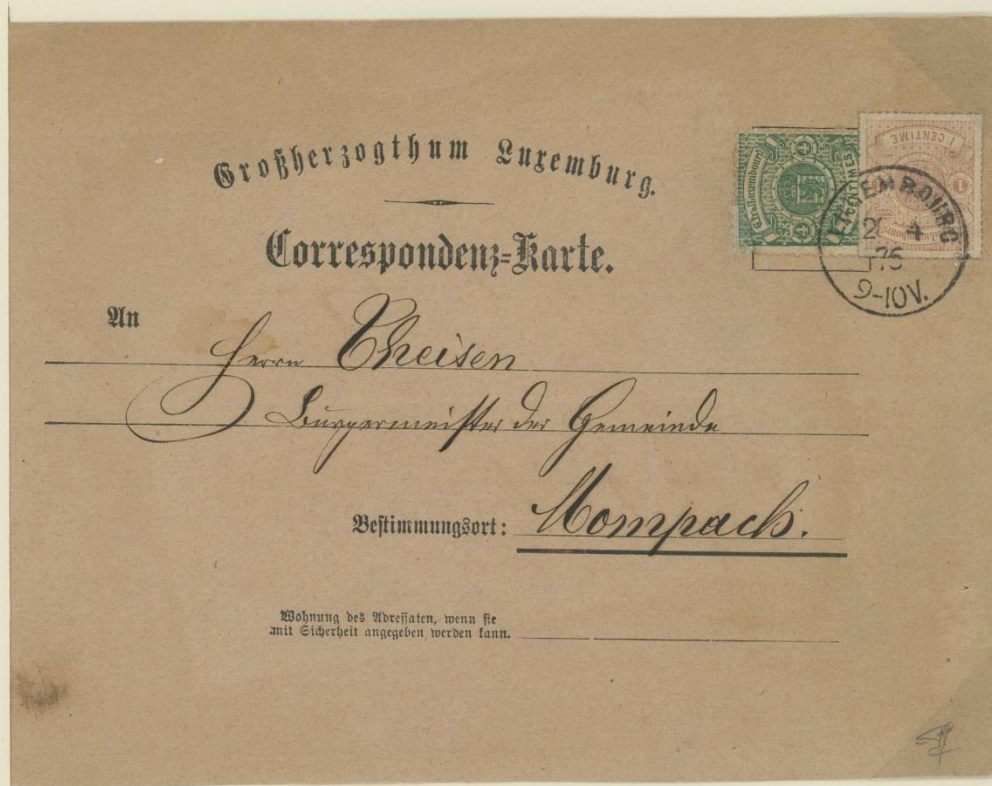 Großherzogthum Luxemburg.
Correspondenz-Karte.
4
CENTIMES
1 CENTIME
LUXEMBOURG
4
76
9-10V.
An
Herrn Theisen
Bürgermeister der Gemeinde
Bestimmungsort: Mompach.
Wohnung des Adressaten, wenn sie
mit Sicherheit angegeben werden kann.